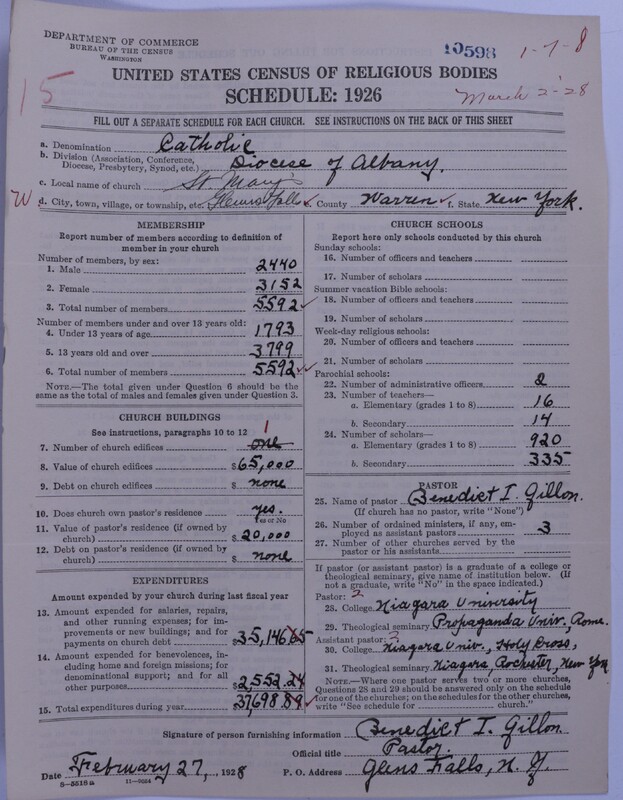 DEPARTMENT OF COMMERCE
BUREAU OF THE CENSUS
WASHINGTON
10598
1-7-8
15
UNITED STATES CENSUS OF RELIGIOUS BODIES
SCHEDULE: 1926
March 2-28
FILL OUT A SEPARATE SCHEDULE FOR EACH CHURCH. SEE INSTRUCTIONS ON THE BACK OF THIS SHEET
a. Denomination Catholic
b. Division (Association, Conference, Diocese, Presbytery, Synod, etc.) Diocese of Albany.
c. Local name of church St Mary's
W d. City, town, village, or township, etc. Glens Falls County Warren f. State New York.
MEMBERSHIP
Report number of members according to definition of
member in your church
Number of members, by sex:
1. Male 2440
2. Female 3152
3. Total number of members 5592
Number of members under and over 13 years old:
4. Under 13 years of age 1793
5. 13 years old and over 3799
6. Total number of members 5592
NOTE.—The total given under Question 6 should be
same as the total of males and females given under Question 3.
CHURCH BUILDINGS
See instructions, paragraphs 10 to 12
7. Number of church edifices one 1
8. Value of church edifices $65,000
9. Debt on church edifices $ none
10. Does church own pastor's residence yes.
Yes or No
11. Value of pastor's residence (if owned by
church) $20,000
12. Debt on pastor's residence (if owned by
church) $ none
EXPENDITURES
Amount expended by your church during last fiscal year
13. Amount expended for salaries, repairs,
and other running expenses; for im-
provements or new buildings; and for
payments on church debt $35,146 65
14. Amount expended for benevolences, in-
cluding home and foreign missions; for
denominational support; and for all
other purposes $2,552.24
15. Total expenditures during year $37,698 89
CHURCH SCHOOLS
Report here only schools conducted by this church
Sunday schools:
16. Number of officers and teachers
17. Number of scholars
Summer vacation Bible schools:
18. Number of officers and teachers
19. Number of scholars
Week-day religious schools:
20. Number of officers and teachers
21. Number of scholars
Parochial schools:
22. Number of administrative officers 2
23. Number of teachers—
a. Elementary (grades 1 to 8) 16
b. Secondary 14
24. Number of scholars—
a. Elementary (grades 1 to 8) 920
b. Secondary 335
PASTOR
25. Name of pastor Benedict I. Gillon.
(If church has no pastor, write "None")
26. Number of ordained ministers, if any, em-
ployed as assistant pastors 3
27. Number of other churches served by the
pastor or his assistants
If pastor (or assistant pastor) is a graduate of a college or
theological seminary, give name of institution below. (If
not a graduate, write "No" in the space indicated.)
Pastor: 2
28. College Niagara University
29. Theological seminary Propaganda Univ., Rome.
Assistant pastor:
30. College Niagara Univ., Holy Cross,
31. Theological seminary Niagara, Rochester, New York
NOTE.—Where one pastor serves two or more churches,
Questions 28 and 29 should be answered only on the schedule
for one of the churches; on the schedules for the other churches,
write "See schedule for church."
Signature of person furnishing information Benedict I. Gillon
Official title Pastor.
Date February 27, 1928 P. O. Address Glens Falls, N. Y.